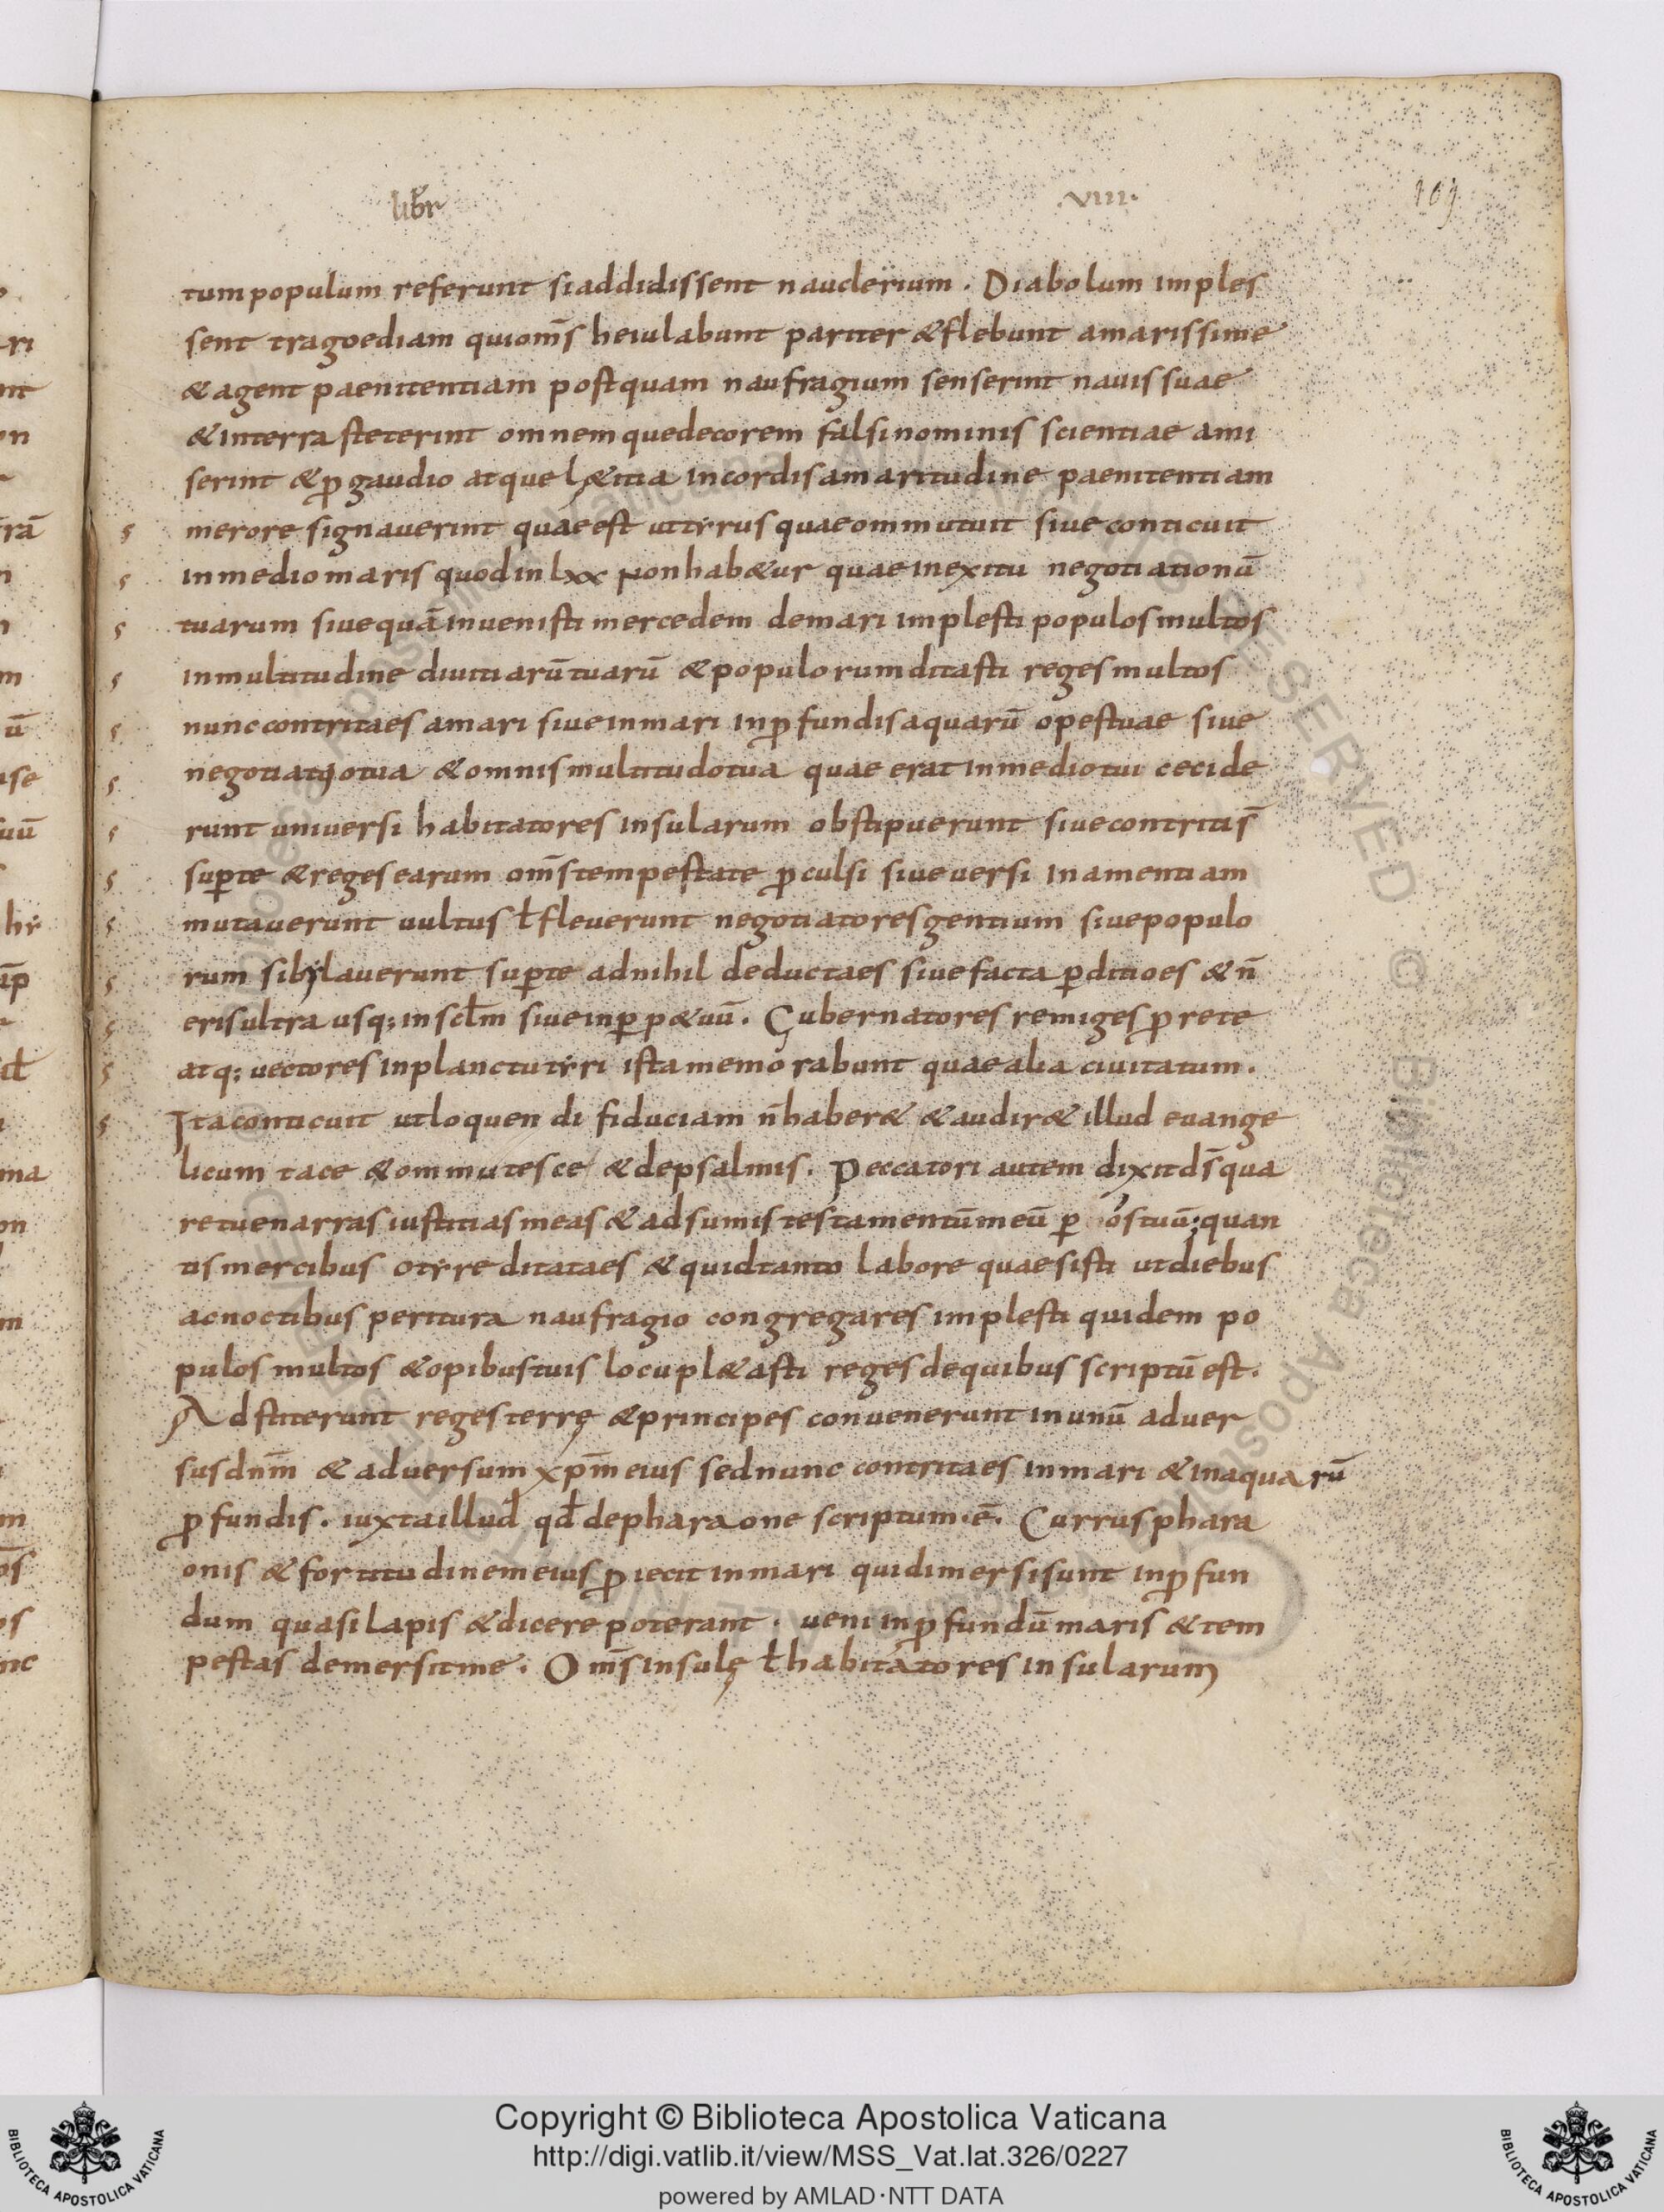 libr̄ .VIIII. 109
tum populum referunt si addidissent nauclerium . Diabolum imples
sent tragoediam qui om̄s heiulabunt pariter & flebunt amarissime
& agent paenitentiam postquam naufragium senserint nauis suae
& in terra steterint omnemque decorem falsi nominis scientiae ami
serint & ꝓ gaudio atque l&itia in cordis amaritudine paenitentiam
merore signauerint quae est ut tyrus quae ommutuit siue conticuit
in medio maris quod in lxx non hab&ur quae in exitu negotiationū
tuarum siue quā inuenisti mercedem de mari implesti populos multos
in multitudine diuitiarū tuarū & populorum ditasti reges multos
nunc contrita es a mari siue in mari in ꝓfundis aquarū opes tuae siue
negotiatio tua & omnis multitudo tua quae erat in medio tui cecide
runt uniuersi habitatores insularum obstipuerunt siue contritis̄
suꝑ te & reges earum om̄s tempestate ꝑculsi siue uersi in amentiam
mutauerunt uultus ł fleuerunt negotiatores gentium siue populo
rum sibylauerunt suꝑ te ad nihil deducta es siue facta ꝑditio es & n̄
eris ultra usq; in sc̄lm siue in ꝑp&uū . Gubernatores remiges ꝓrete
atq; uectores in planctu tyri ista memorabunt quae alia ciuitatum .
Ita conticuit ut loquendi fiduciam n̄ haber& & audir& illud euange
licum tace & ommutesce & de psalmis . Peccatori autem dixit ds̄ qua
re tu enarras iustitias meas & adsumis testamentū meū ꝑ os tuū; quan
tis mercibus o tyre ditata es & quid tanto labore quaesisti ut diebus
ac noctibus peritura naufragio congregares implesti quidem po
pulos multos & opibus tuis locupl&asti reges de quibus scriptū est .
Adstiterunt reges terrę & principes conuenerunt in unū aduer
sus dn̄m & aduersum xp̄m eius sed nunc contrita es in mari & in aquarū
ꝓfundis . iuxta illud qd̄ de pharaone scriptum .ē. Currus phara
onis & fortitudinem eius ꝓiecit in mari qui dimersi sunt in ꝓfun
dum quasi lapis & dicere poterant . ueni in ꝓfundū maris & tem
pestas demersit me . Om̄s insulę ł habitatores insularum
Copyright © Biblioteca Apostolica Vaticana
http://digi.vatlib.it/view/MSS_Vat.lat.326/0227
powered by AMLAD·NTT DATA
BIBLIOTECA APOSTOLICA VATICANA
BIBLIOTECA APOSTOLICA VATICANA